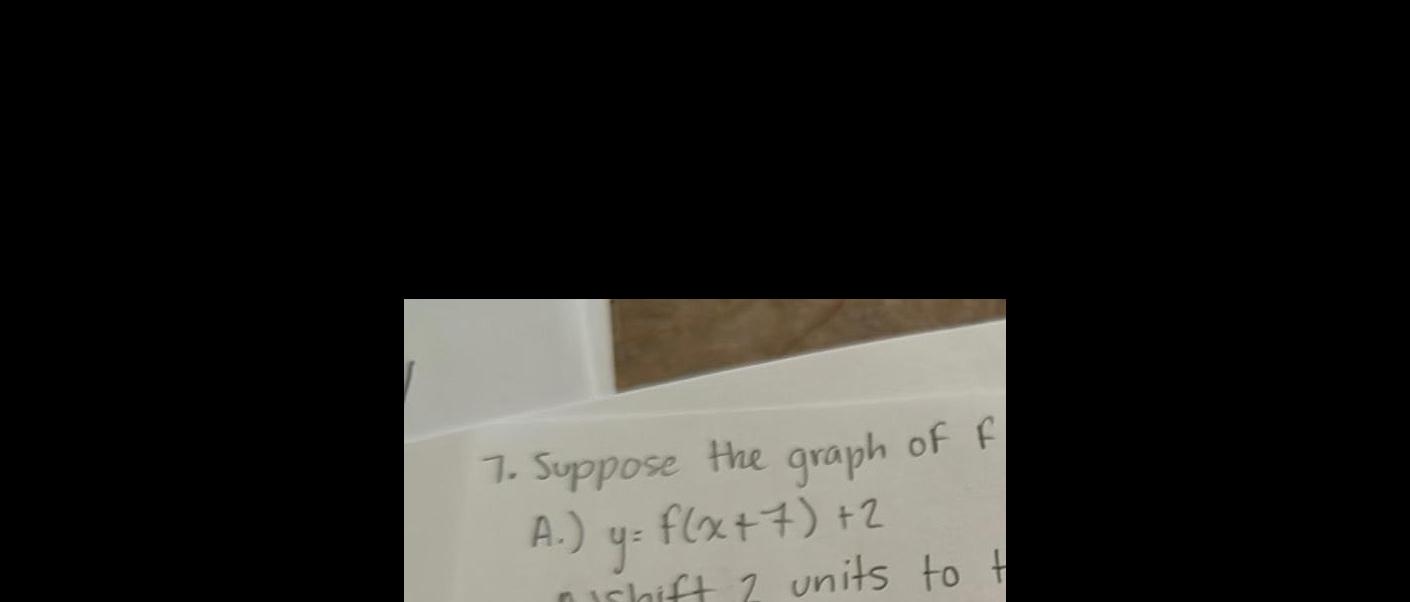 7. Suppose the graph of f
A.) y= f(x+7) +2
shift 2 units to